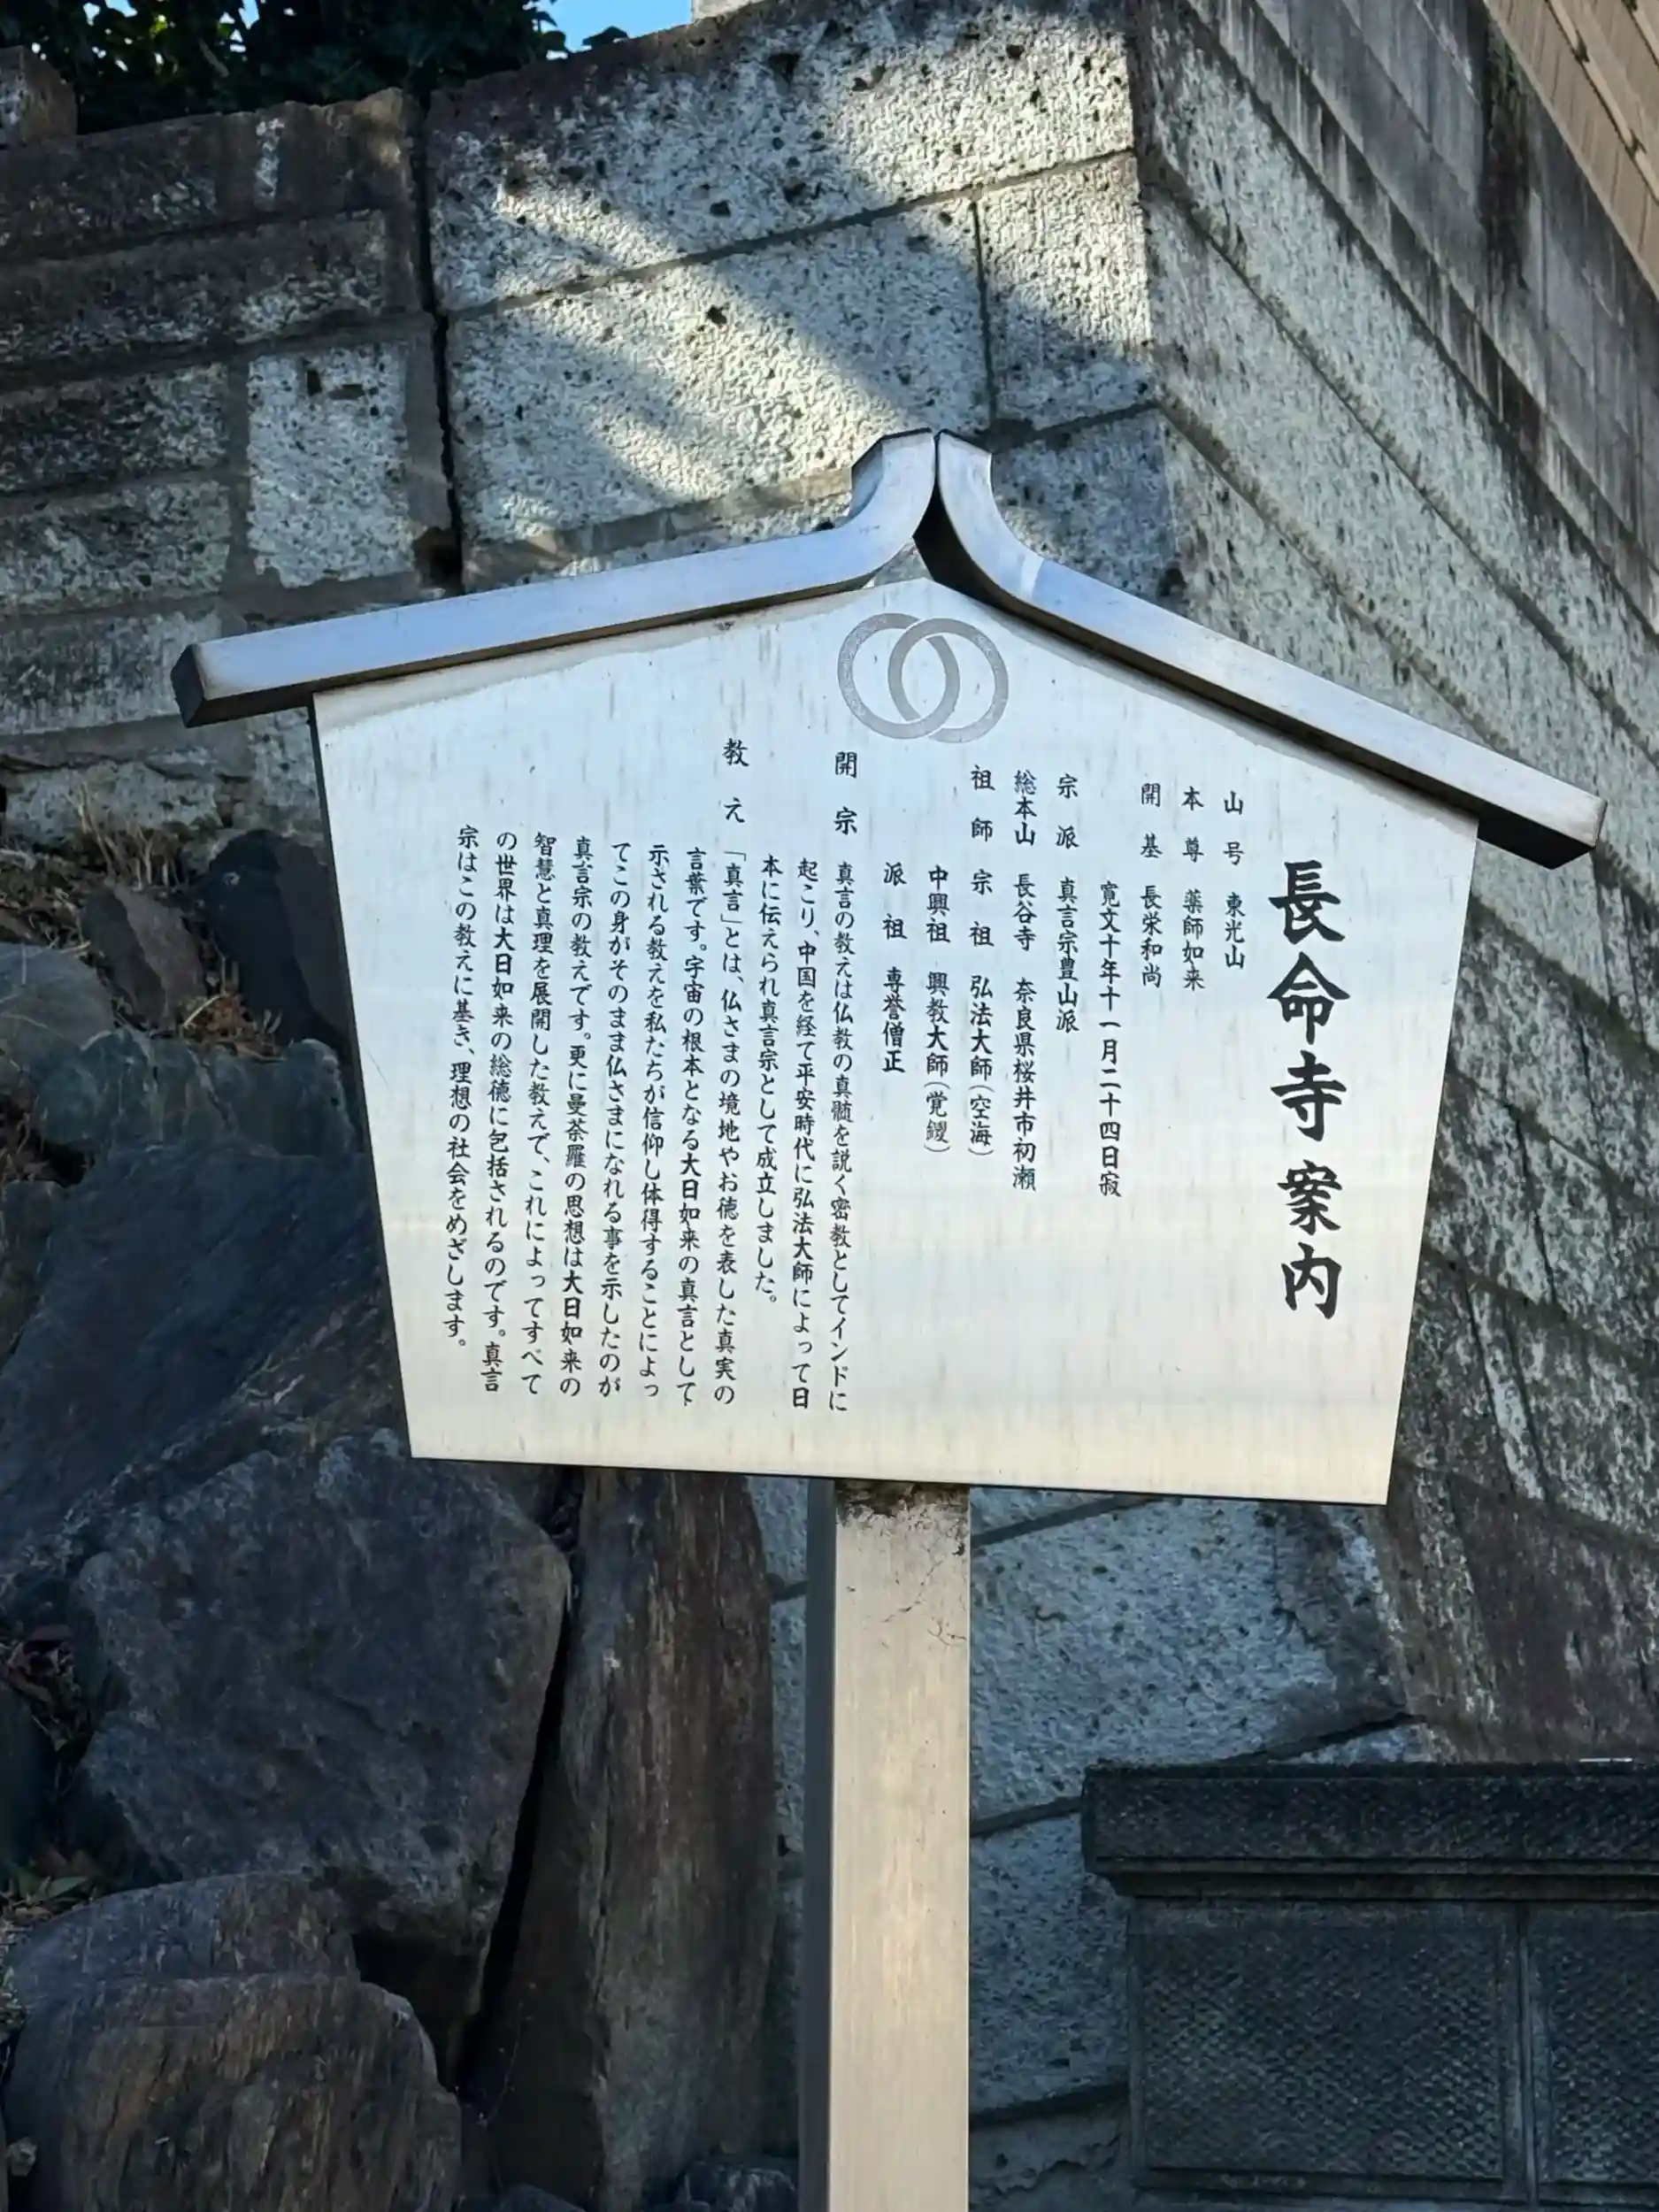 長命寺 案内
山号 東光山
本尊 薬師如来
開基 長栄和尚
寛文十年十一月二十四日寂
宗派 真言宗豊山派
総本山 長谷寺 奈良県桜井市初瀬
祖師 宗祖 弘法大師(空海)
中興祖 興教大師(覚鑁)
派祖 専誉僧正
開宗 真言の教えは仏教の真髄を説く密教としてインドに
起こり、中国を経て平安時代に弘法大師によって日
本に伝えられ真言宗として成立しました。
教え 「真言」とは、仏さまの境地やお徳を表した真実の
言葉です。宇宙の根本となる大日如来の真言として
示される教えを私たちが信仰し体得することによっ
てこの身がそのまま仏さまになれる事を示したのが
真言宗の教えです。更に曼荼羅の思想は大日如来の
智慧と真理を展開した教えで、これによってすべて
の世界は大日如来の総徳に包括されるのです。真言
宗はこの教えに基き、理想の社会をめざします。